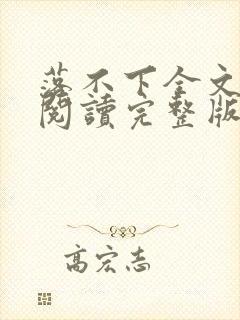 落不下全文
閱讀完整版
高宏志